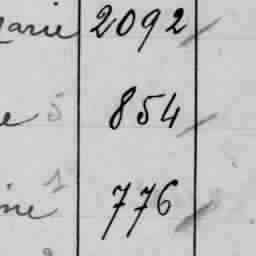 arie 2092
e 5 854
ine 1 776